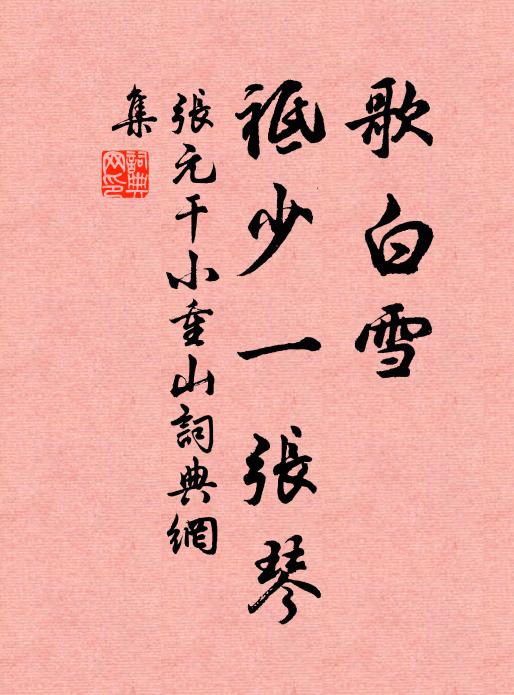 歌白雪
祗少一張琴
張元干小重山詞典網
集
詞典
网印